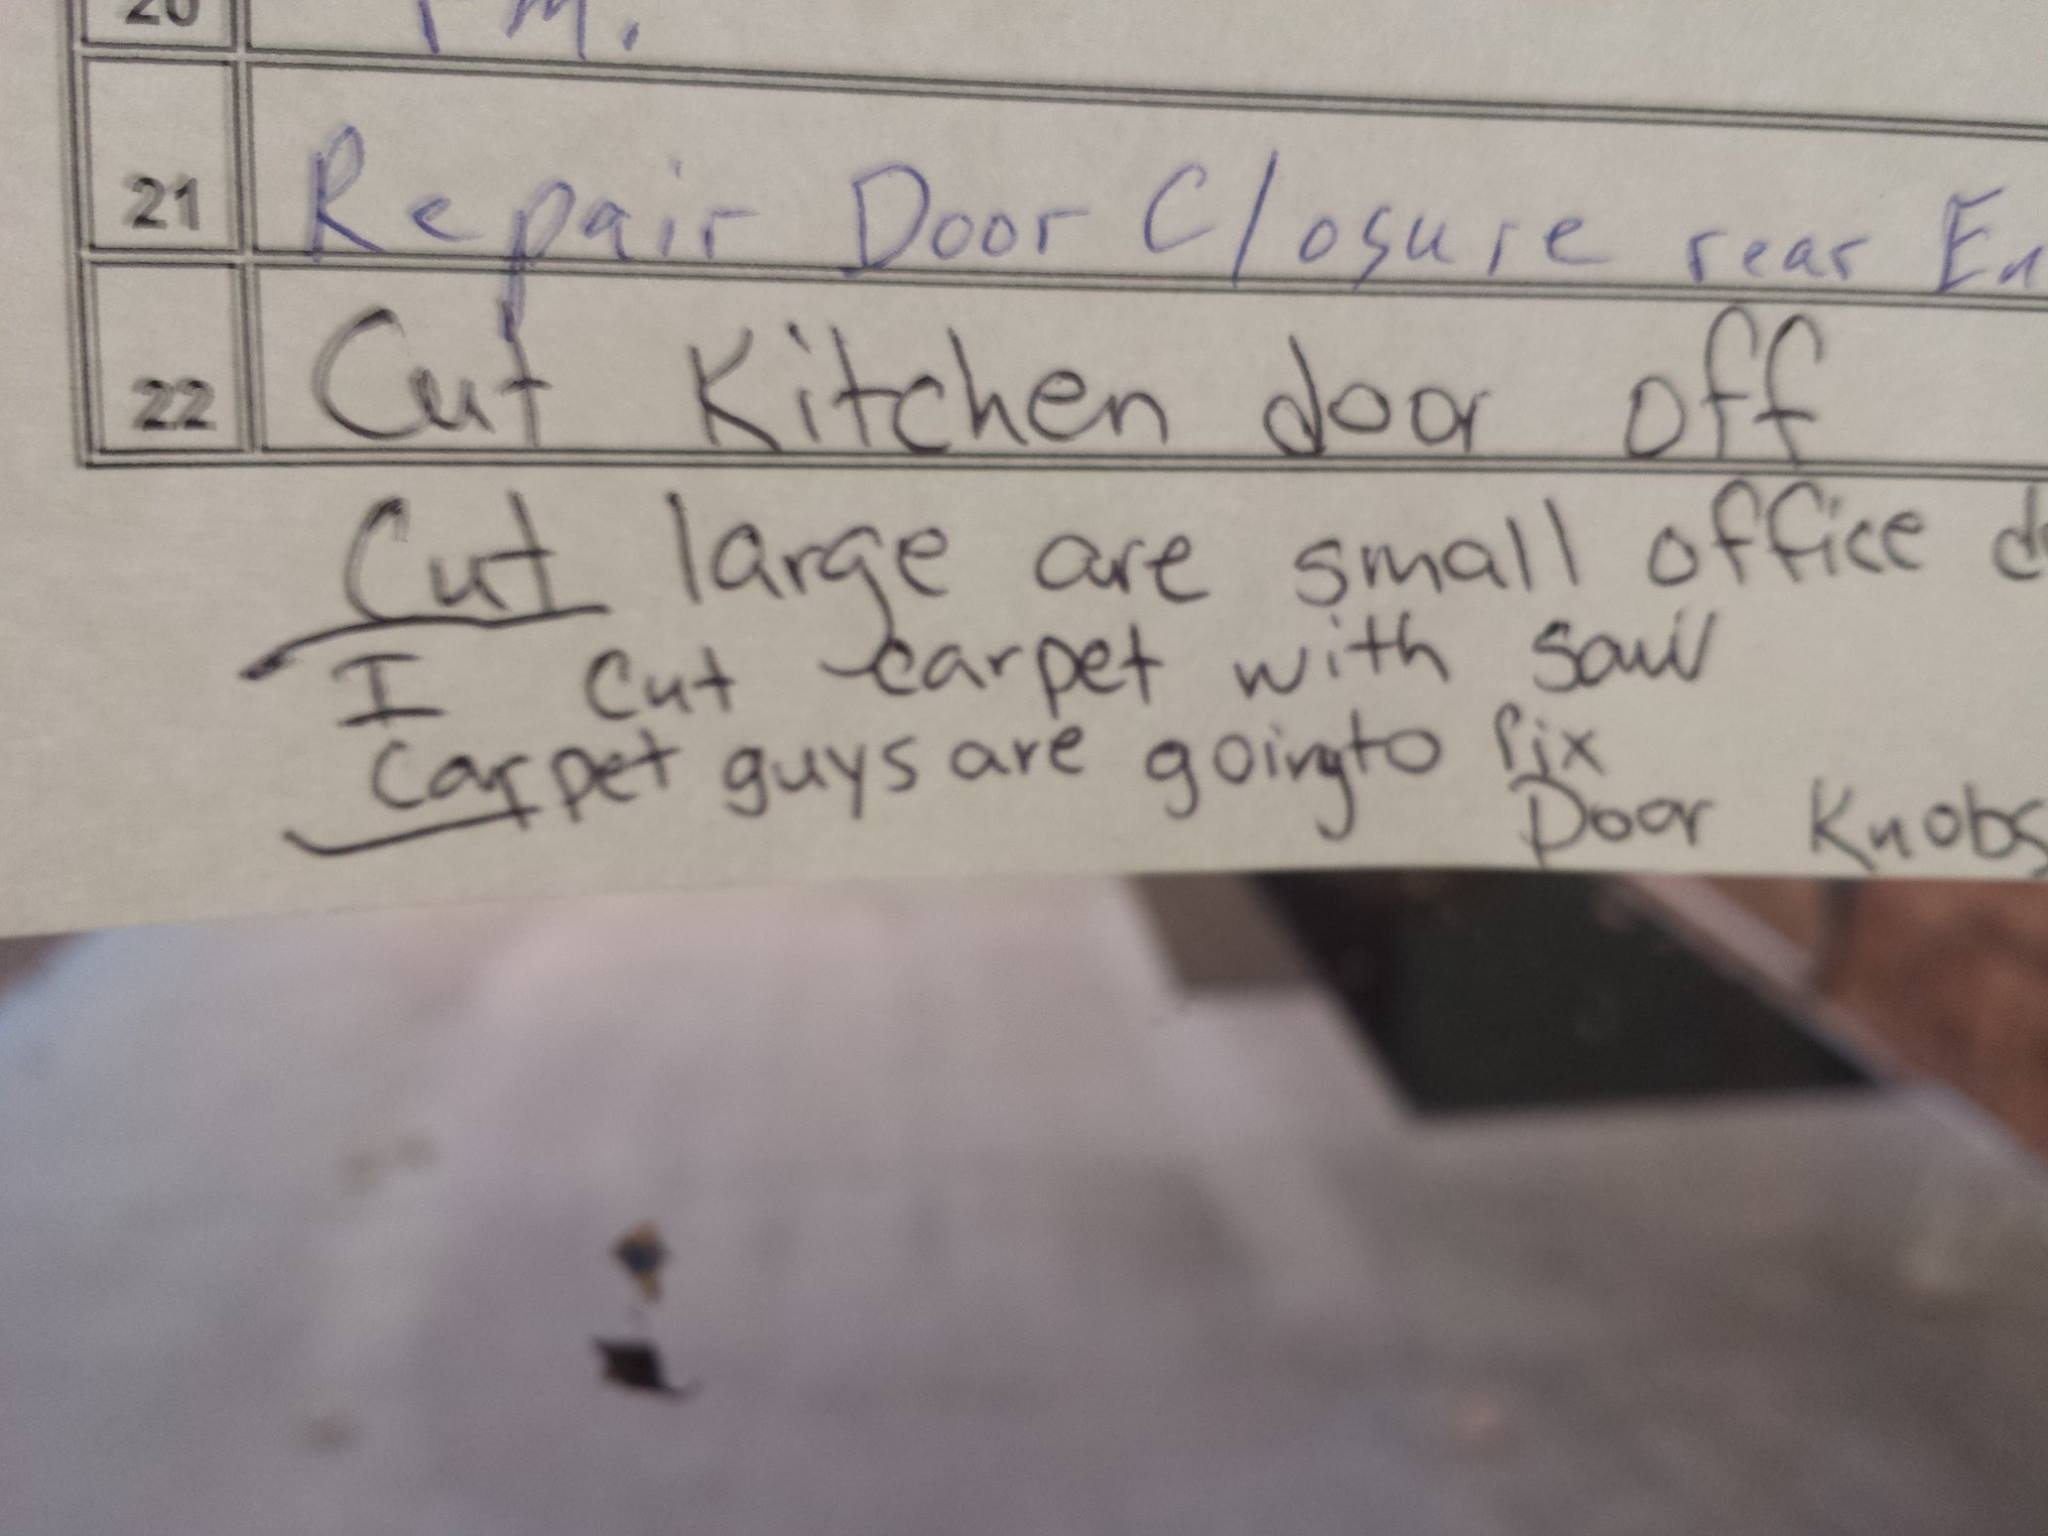 20 PM.
21 Repair Door Closure rear En
22 Cut Kitchen door off
Cut large are small office d
I cut carpet with saw
Carpet guys are going to fix
Door Knobs